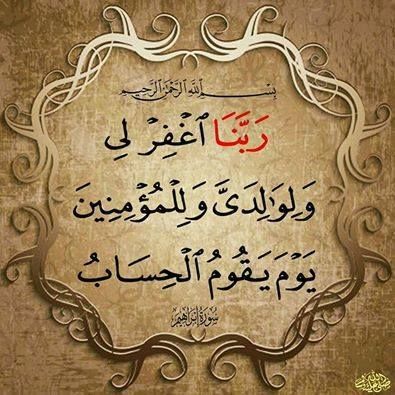 بِسْمِ ٱللَّهِ ٱلرَّحْمَٰنِ ٱلرَّحِيمِ
رَبَّنَا ٱغْفِرْ لِى
وَلِوَٰلِدَىَّ وَلِلْمُؤْمِنِينَ
يَوْمَ يَقُومُ ٱلْحِسَابُ
سُورَةُ إِبْرَاهِيمَ